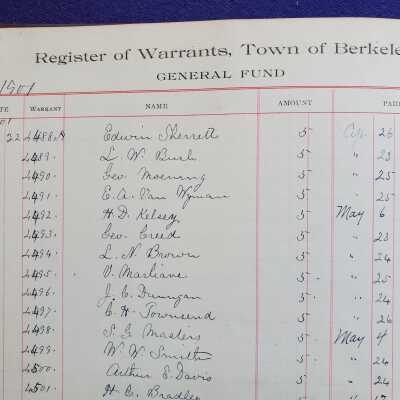 Register of Warrants, Town of Berkele
GENERAL FUND
1901
TE WARRANT NAME AMOUNT PAID
22 4488 Edwin Sherrett 5 Apr 26
4489 L. W. Bush 5 " 23
4490 Geo Moening 5 " 25
4491 E. A. Van Wyman 5 " 25
4492 H. D. Kelsey 5 May 6
4493 Geo. Creed 5 " 23
4494 L. N. Brown 5 " 24
4495 V. Marliave 5 " 25
4496 J. C. Dunngan 5 " 24
4497 C. H. Townsend 5 " 26
4498 S. G. Masters 5 May 4
4499 W. W. Smith 5 " 24
4500 Arthur E. Davis 5 " 24
4501 H. C. Bradley 5